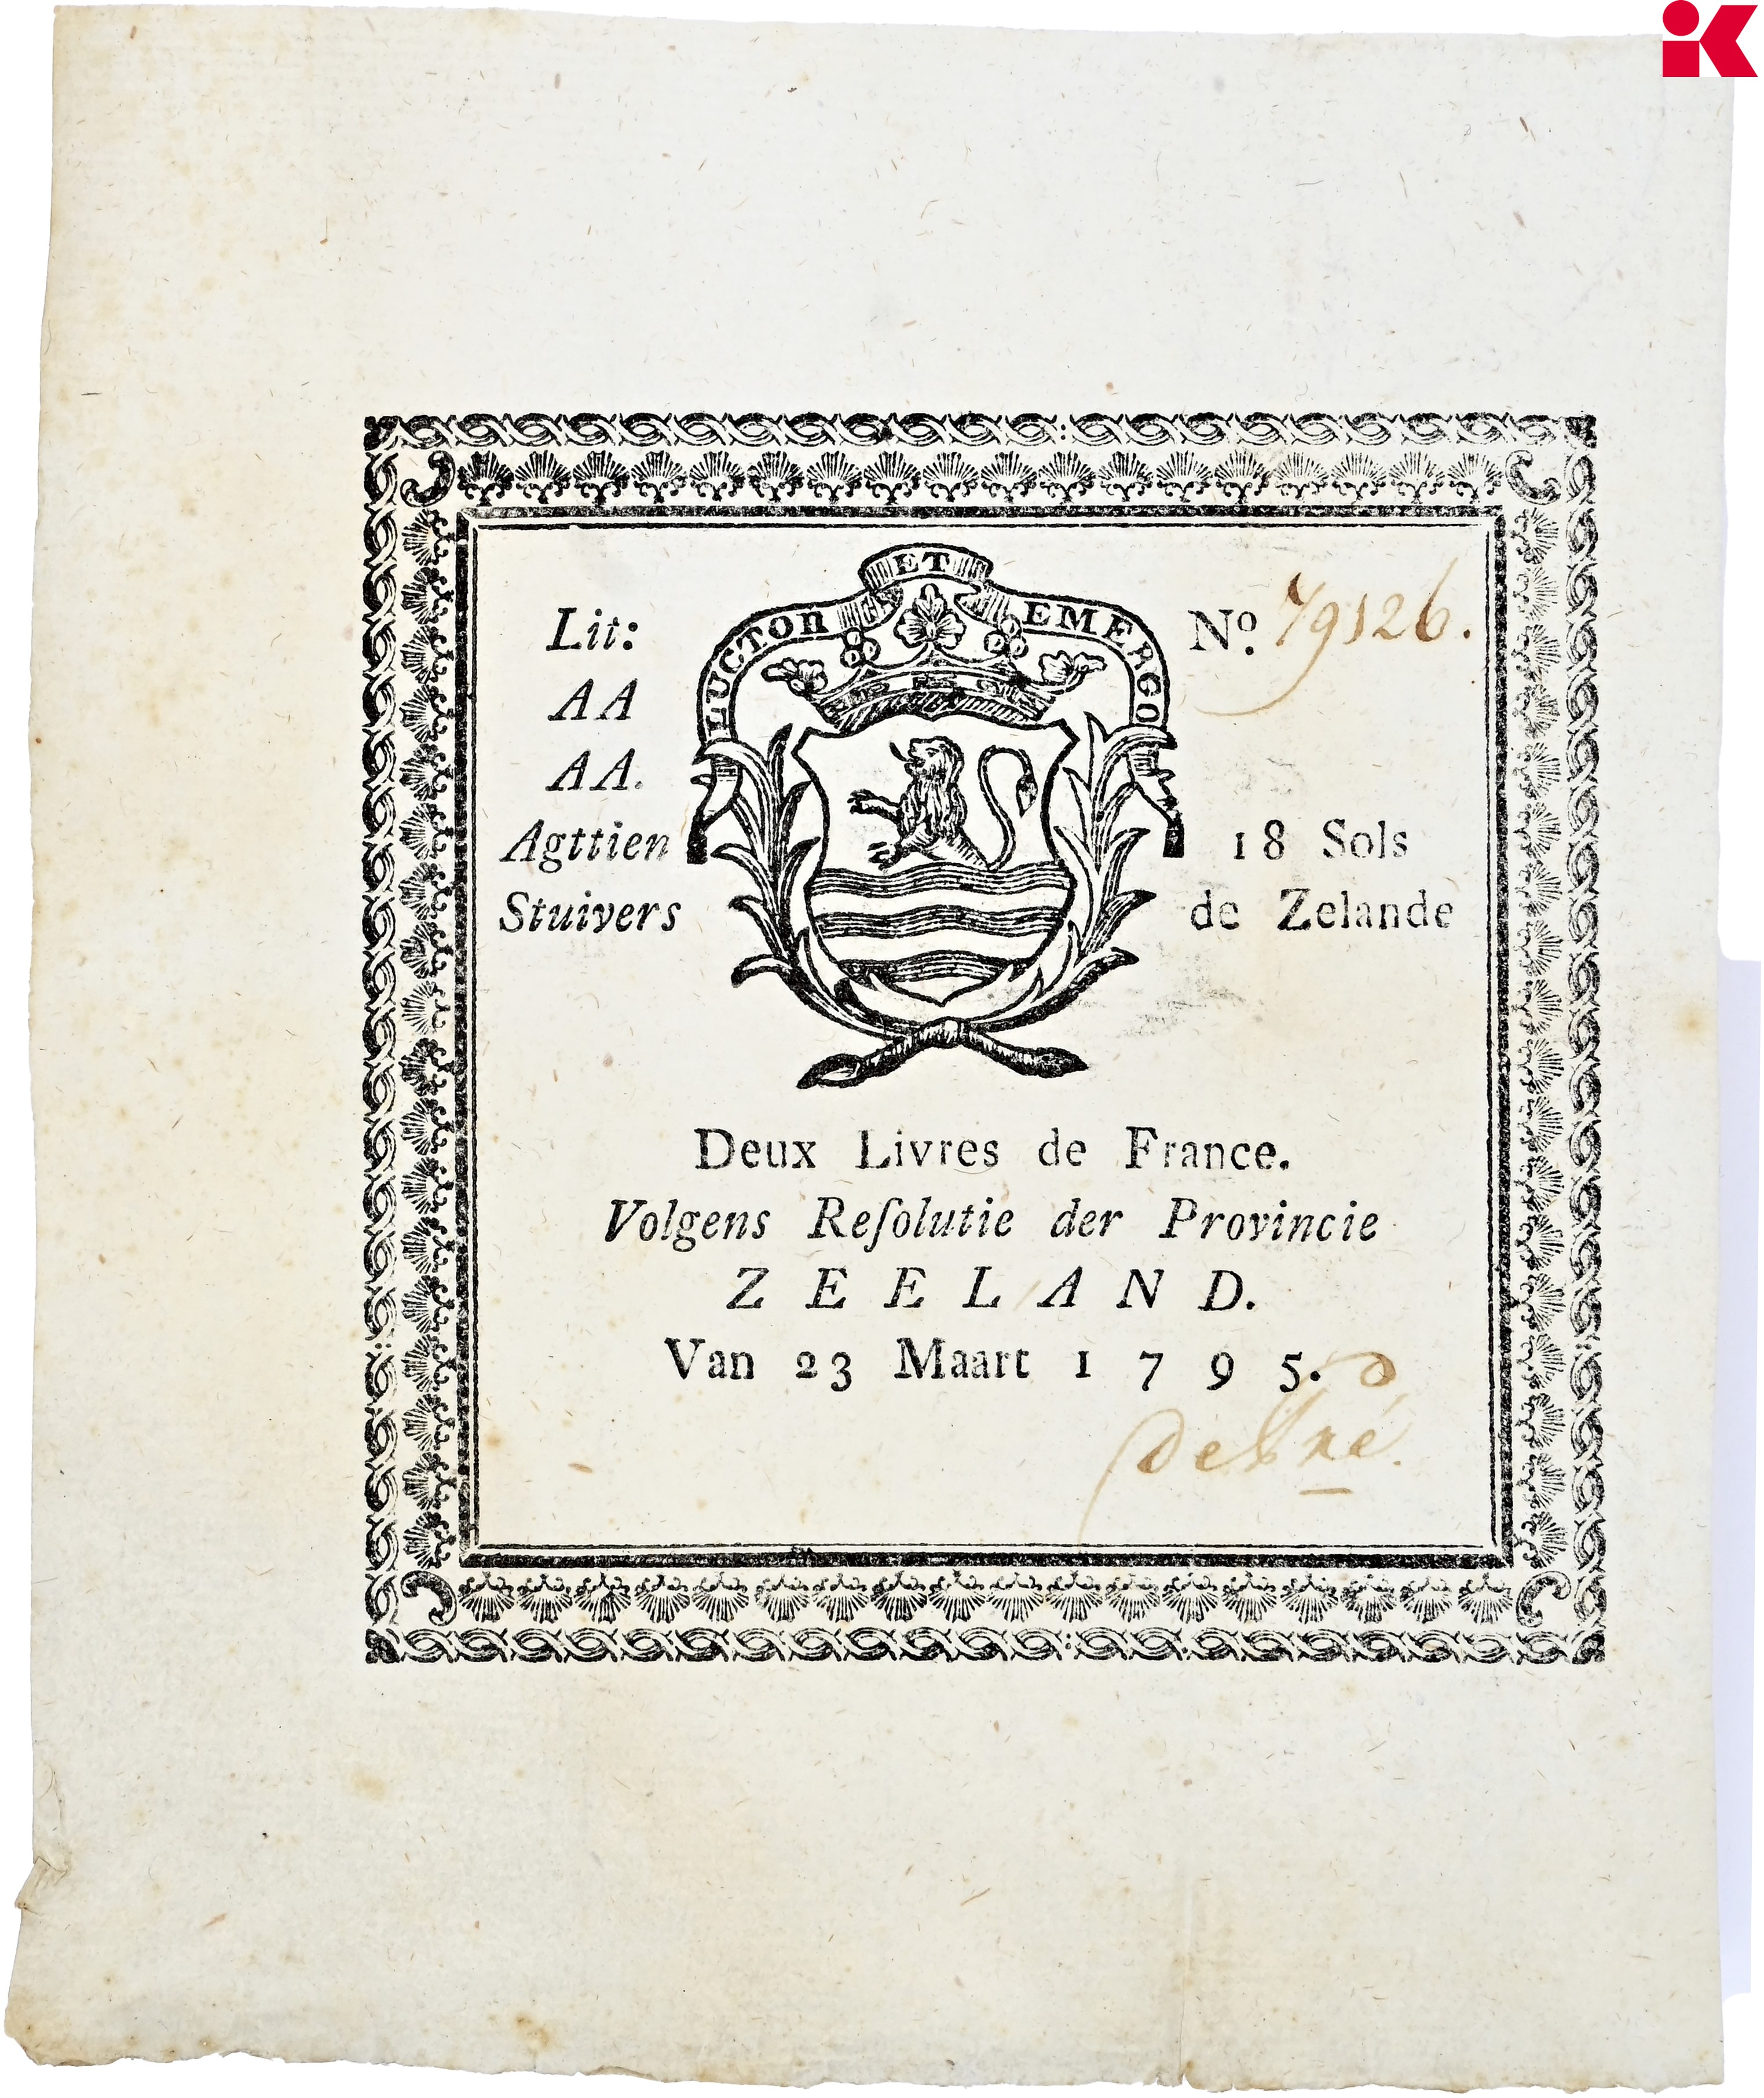 LUCTOR ET EMERGO
Lit:
AA
AA.
Agttien
Stuivers
No. 79126.
18 Sols
de Zelande
Deux Livres de France.
Volgens Reſolutie der Provincie
ZEELAND.
Van 23 Maart 1795.